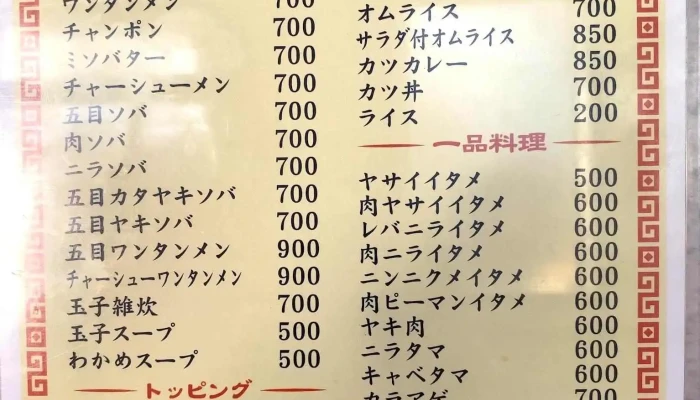 ワンタンメン 700
チャンポン 700
ミソバター 700
チャーシューメン 700
五目ソバ 700
肉ソバ 700
ニラソバ 700
五目カタヤキソバ 700
五目ヤキソバ 700
五目ワンタンメン 900
チャーシューワンタンメン 900
玉子雑炊 700
玉子スープ 500
わかめスープ 500
トッピング
オムライス 700
サラダ付オムライス 850
カツカレー 850
カツ丼 700
ライス 200
一品料理
ヤサイイタメ 500
肉ヤサイイタメ 600
レバニライタメ 600
肉ニライタメ 600
ニンニクメイタメ 600
肉ピーマンイタメ 600
ヤキ肉 600
ニラタマ 600
キャベタマ 600
カラアゲ 700